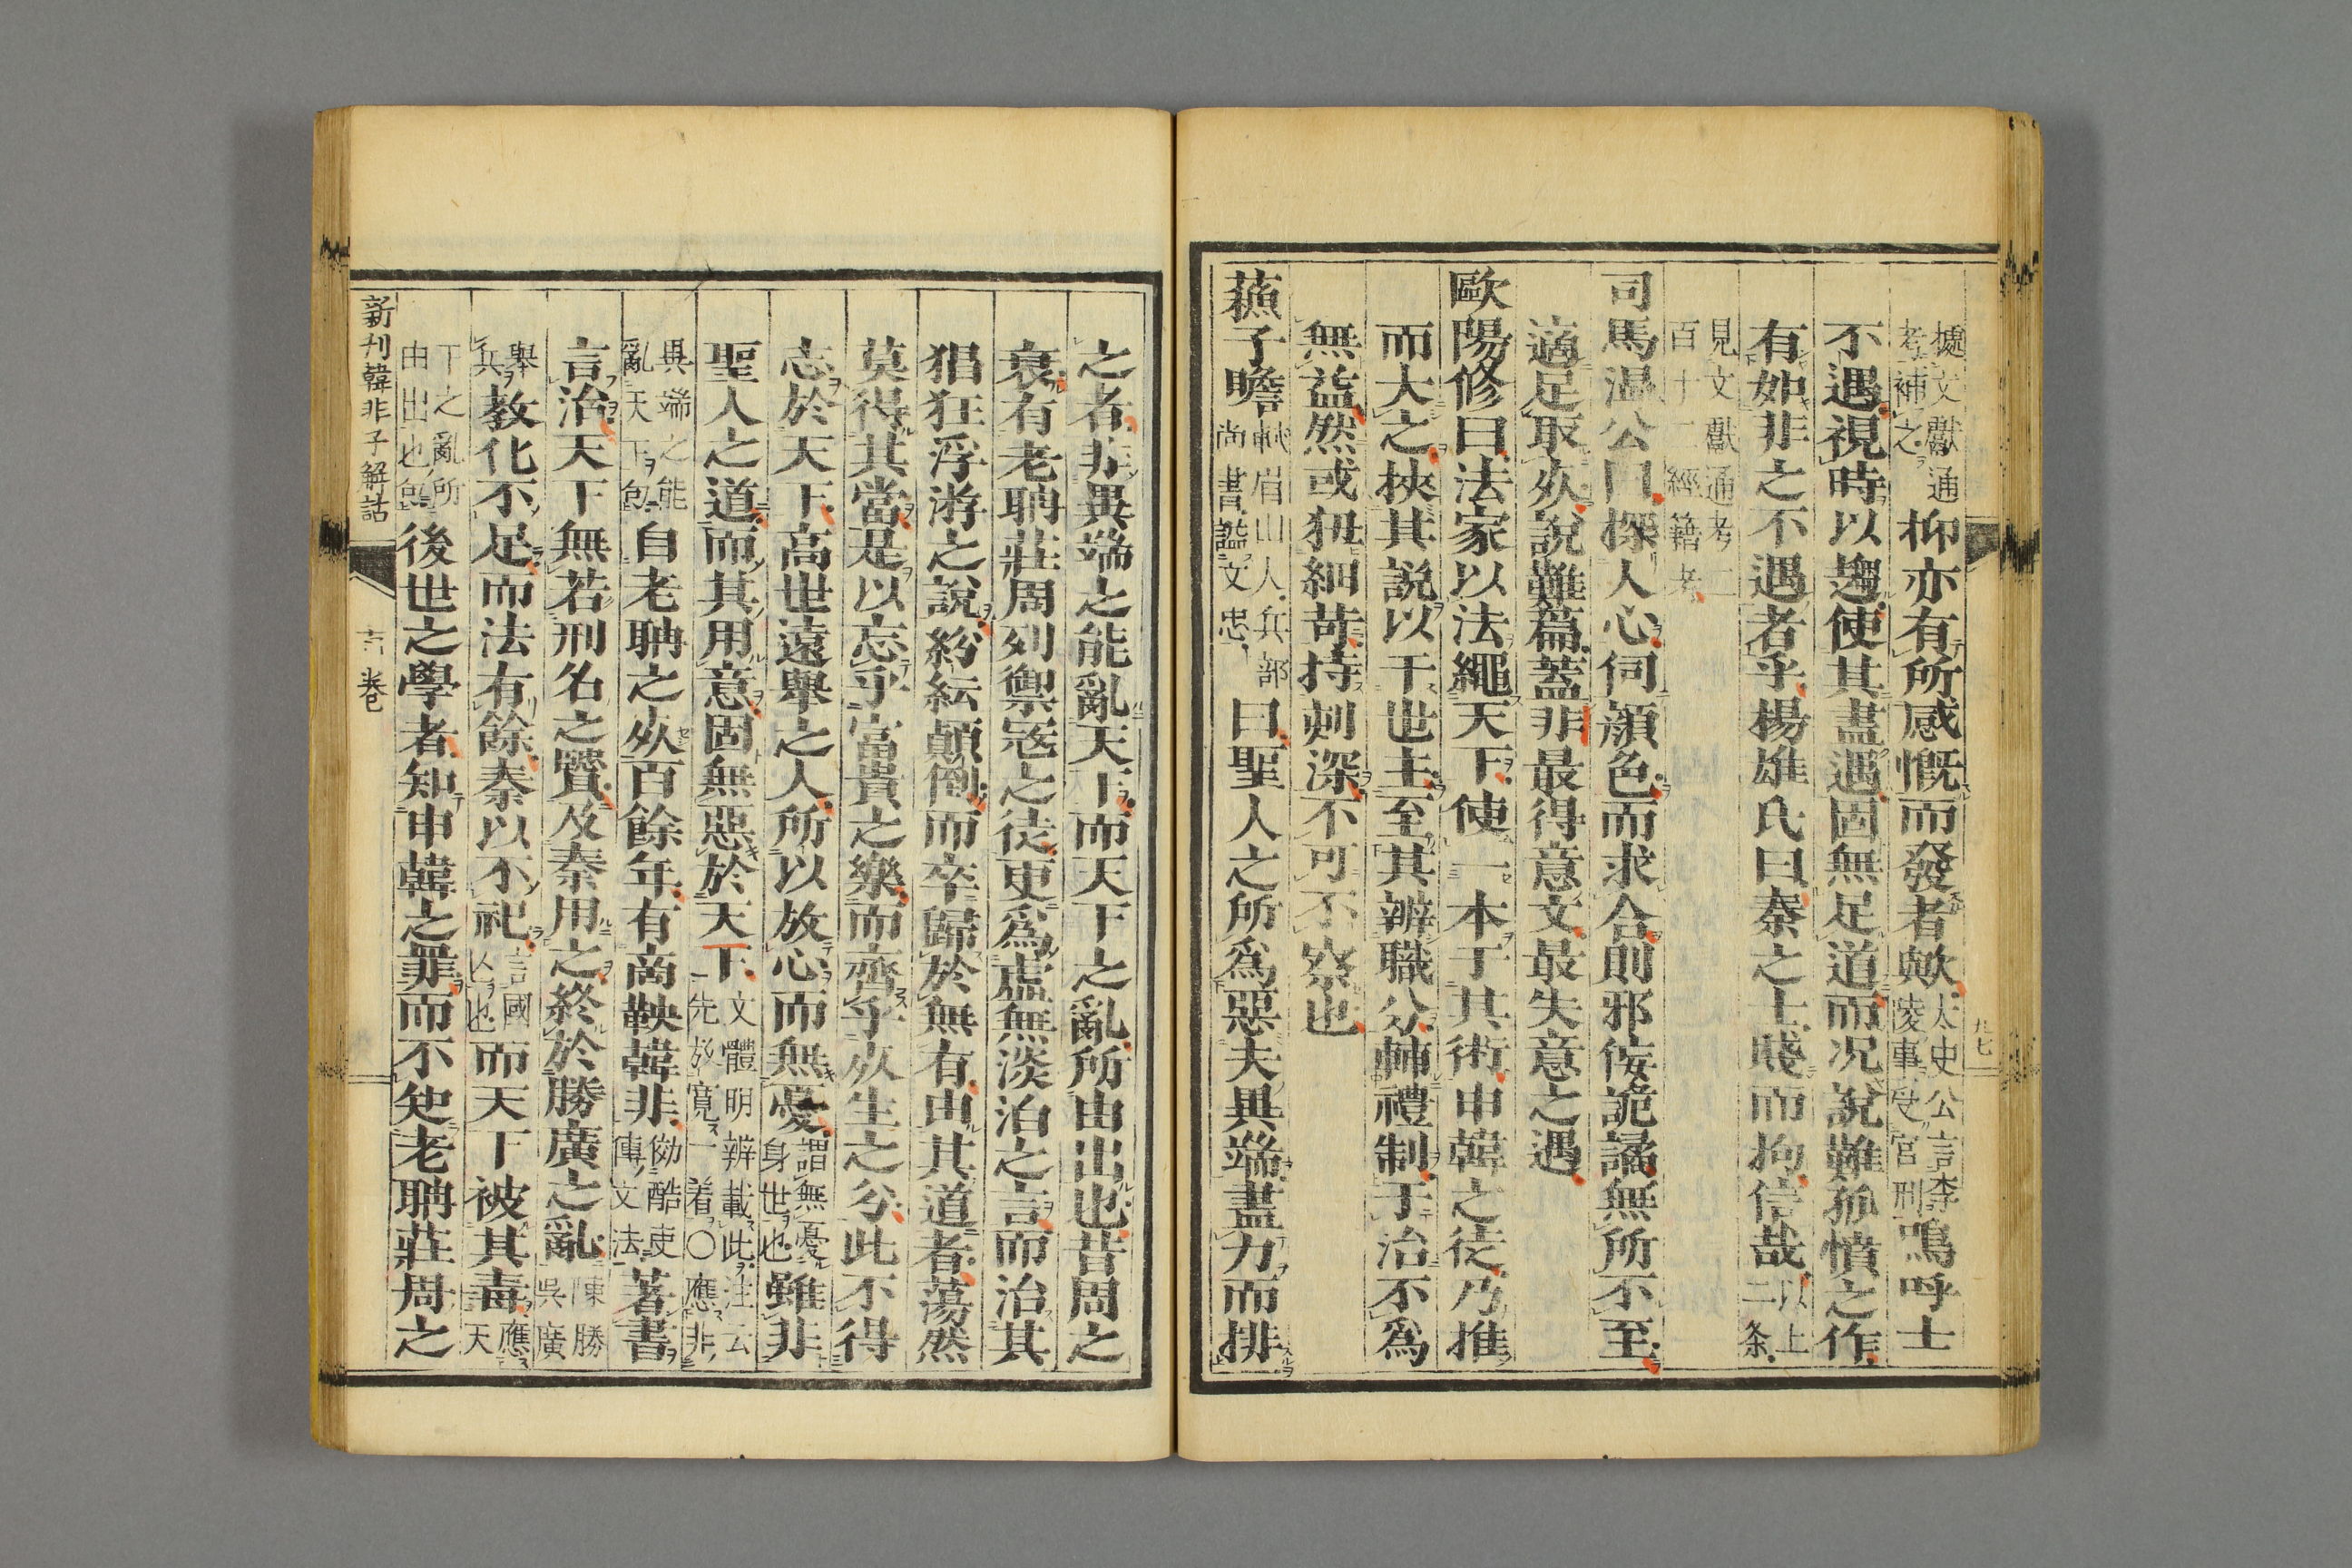 據文獻通考補之抑亦有所感慨而發者歟太史公言李陵事受宮刑嗚呼士
不遇視時以趨使其盡遇固無足道而况說難孤憤之作
有如非之不遇者乎楊雄氏曰秦之士賤而拘信哉以上二条
見文獻通考二百十二經籍考
司馬温公曰探人心伺顔色而求合則邪佞詭譎無所不至
適足取死說難篇蓋非最得意文最失意之遇
歐陽修曰法家以法繩天下使一本于其術申韓之徒乃推
而大之挾其說以干世主至其辨職分輔禮制于治不爲
無益然或狃細苛持刻深不可不察也
蘓子瞻軾眉山人兵部尚書謚文忠曰聖人之所爲惡夫異端盡力而排
之者非異端之能亂天下而天下之亂所由出也昔周之
衰有老聃莊周列禦宼之徒更爲虛無淡泊之言而治其
猖狂浮游之說紛紜顛倒而卒歸於無有由其道者蕩然
莫得其當是以忘乎富貴之樂而齊乎死生之分此不得
志於天下高世遠舉之人所以放心而無憂謂無憂身世也雖非
聖人之道而其用意固無惡於天下文體明辨載此注云一先放寛一着〇應非
異端之能亂天下句自老聃之死百餘年有商鞅韓非傚酷吏傳文法著書
言治天下無若刑名之賢及秦用之終於勝廣之亂陳勝吳廣
教化不足而法有餘秦以不祀言國亡也而天下被其毒應天
下之亂所由出也句後世之學者知申韓之罪而不知老聃莊周之
新刊韓非子解詁 首卷